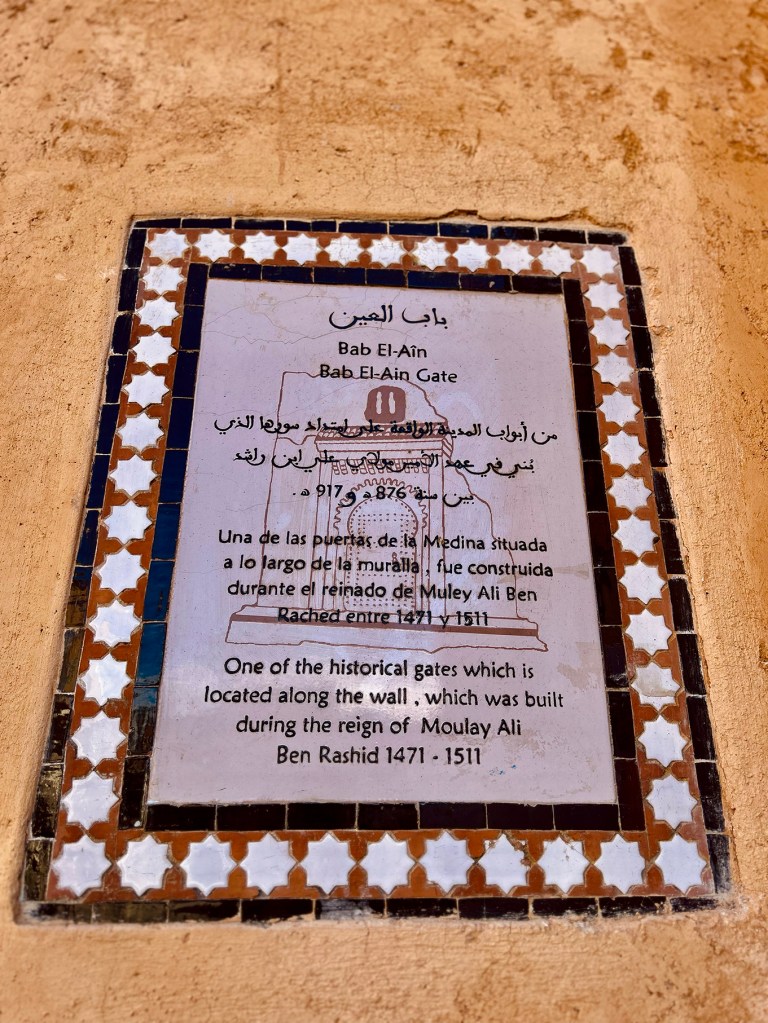 باب العين
Bab El-Aîn
Bab El-Ain Gate
من أبواب المدينة الواقعة على امتداد سورها الذي
بُني في عهد الأمير مولاي علي ابن راشد
بين سنة 876 هـ و 917 هـ .
Una de las puertas de la Medina situada
a lo largo de la muralla , fue construida
durante el reinado de Muley Ali Ben
Rached entre 1471 y 1511
One of the historical gates which is
located along the wall , which was built
during the reign of Moulay Ali
Ben Rashid 1471 - 1511